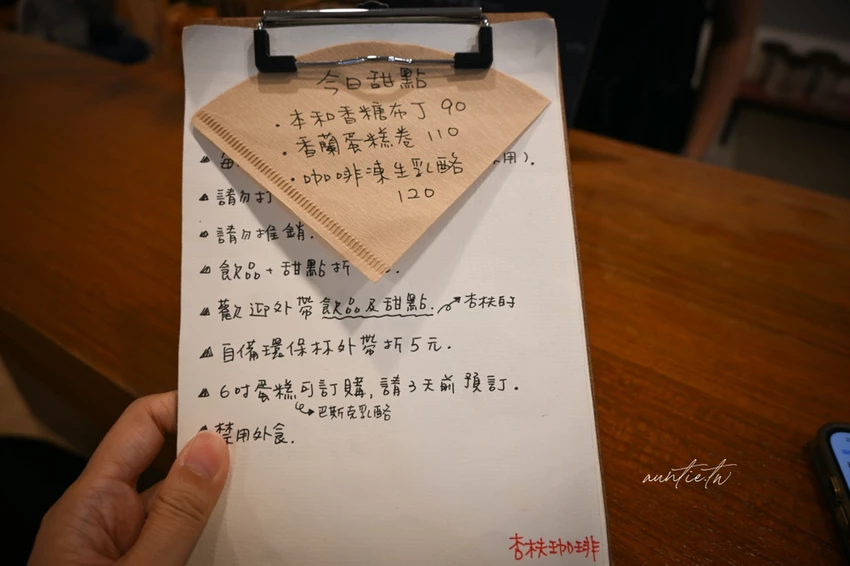 今日甜點
・本和香糖布丁 90
・香蘭蛋糕卷 110
・咖啡凍生乳酪
120
每
用).
請勿打
請勿推銷.
飲品+甜點折
歡迎外帶飲品及甜點. 杏枎的
自備環保杯外帶折5元.
6吋蛋糕可訂購,請3天前預訂.
巴斯克乳酪
禁用外食.
杏枎珈琲
auntie.tw